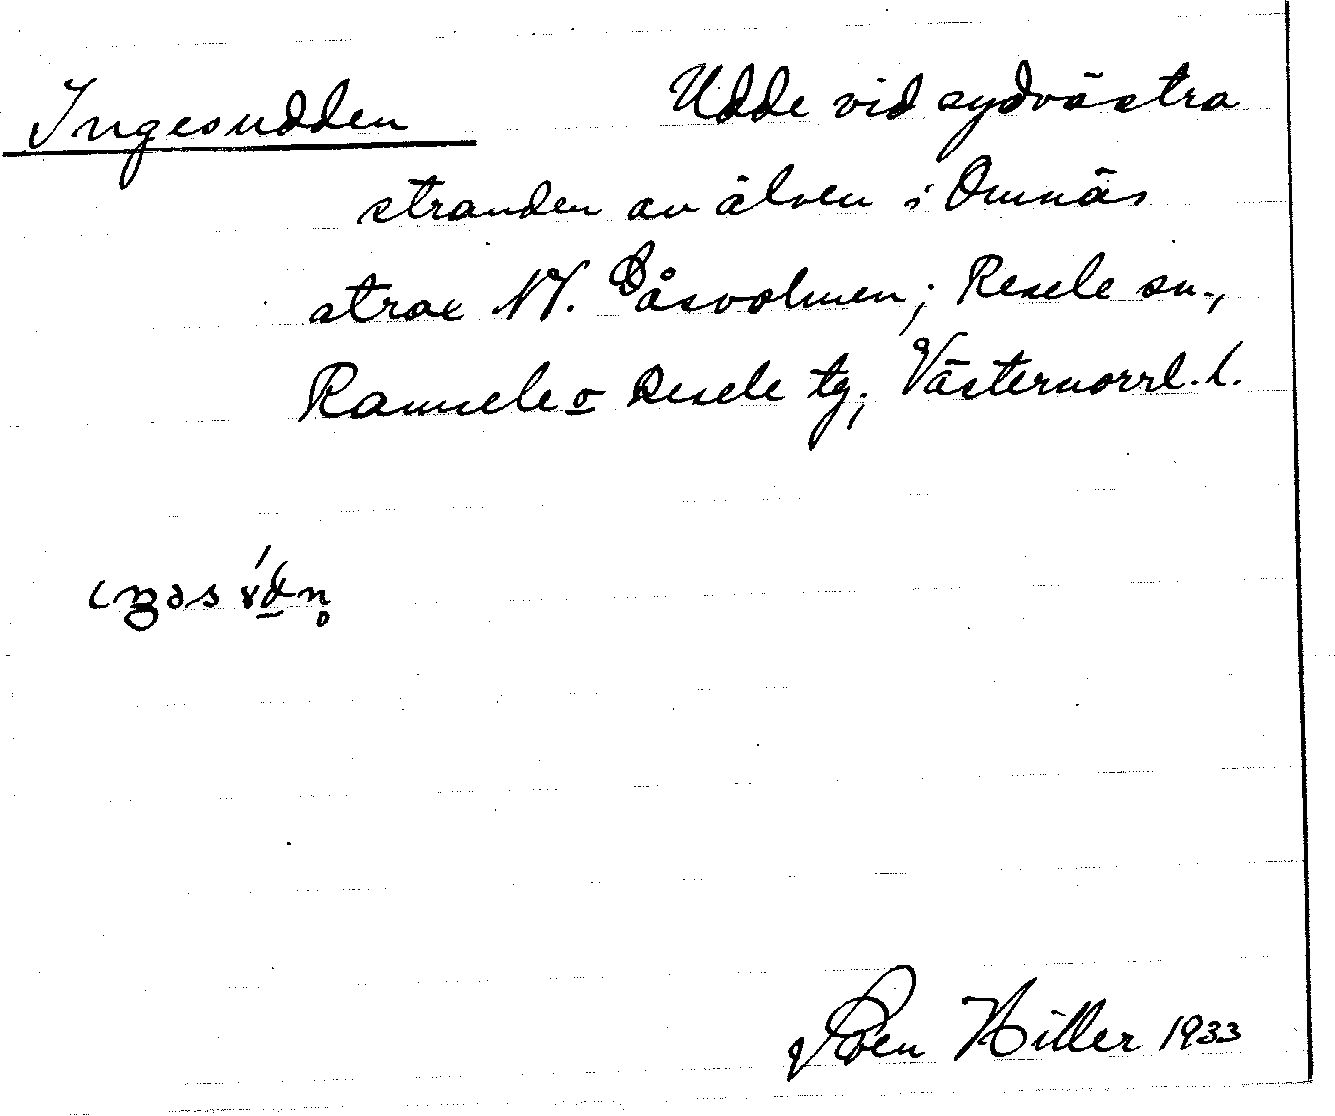 Ingesudden Udde vid sydvästra
stranden av älven i Omnäs
strax NV. Gåsholmen; Resele sn.,
Ramsele o Resele tg; Västernorrl. l.
Sven Hiller 1933